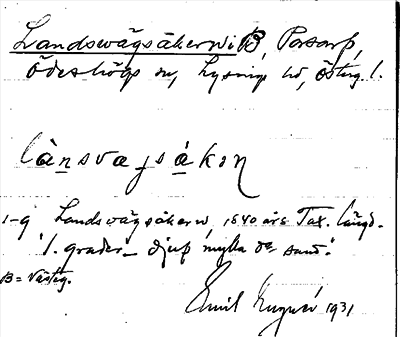 Landsvägsåkerwi B, Posarp,
Ödeshögs sn, Lysings hd, Östrg. l.
lànsvaɟsàkoɳ
1-q Landsvägsåkerw, 1840 års Tax. längd.
"1. grader - djup mylla oc sand".
B = västrg.
Emil 1931